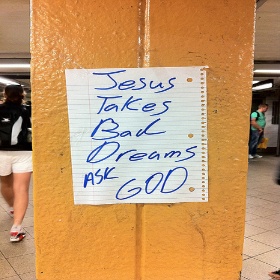 Jesus
Takes
Bad
Dreams
ASK GOD